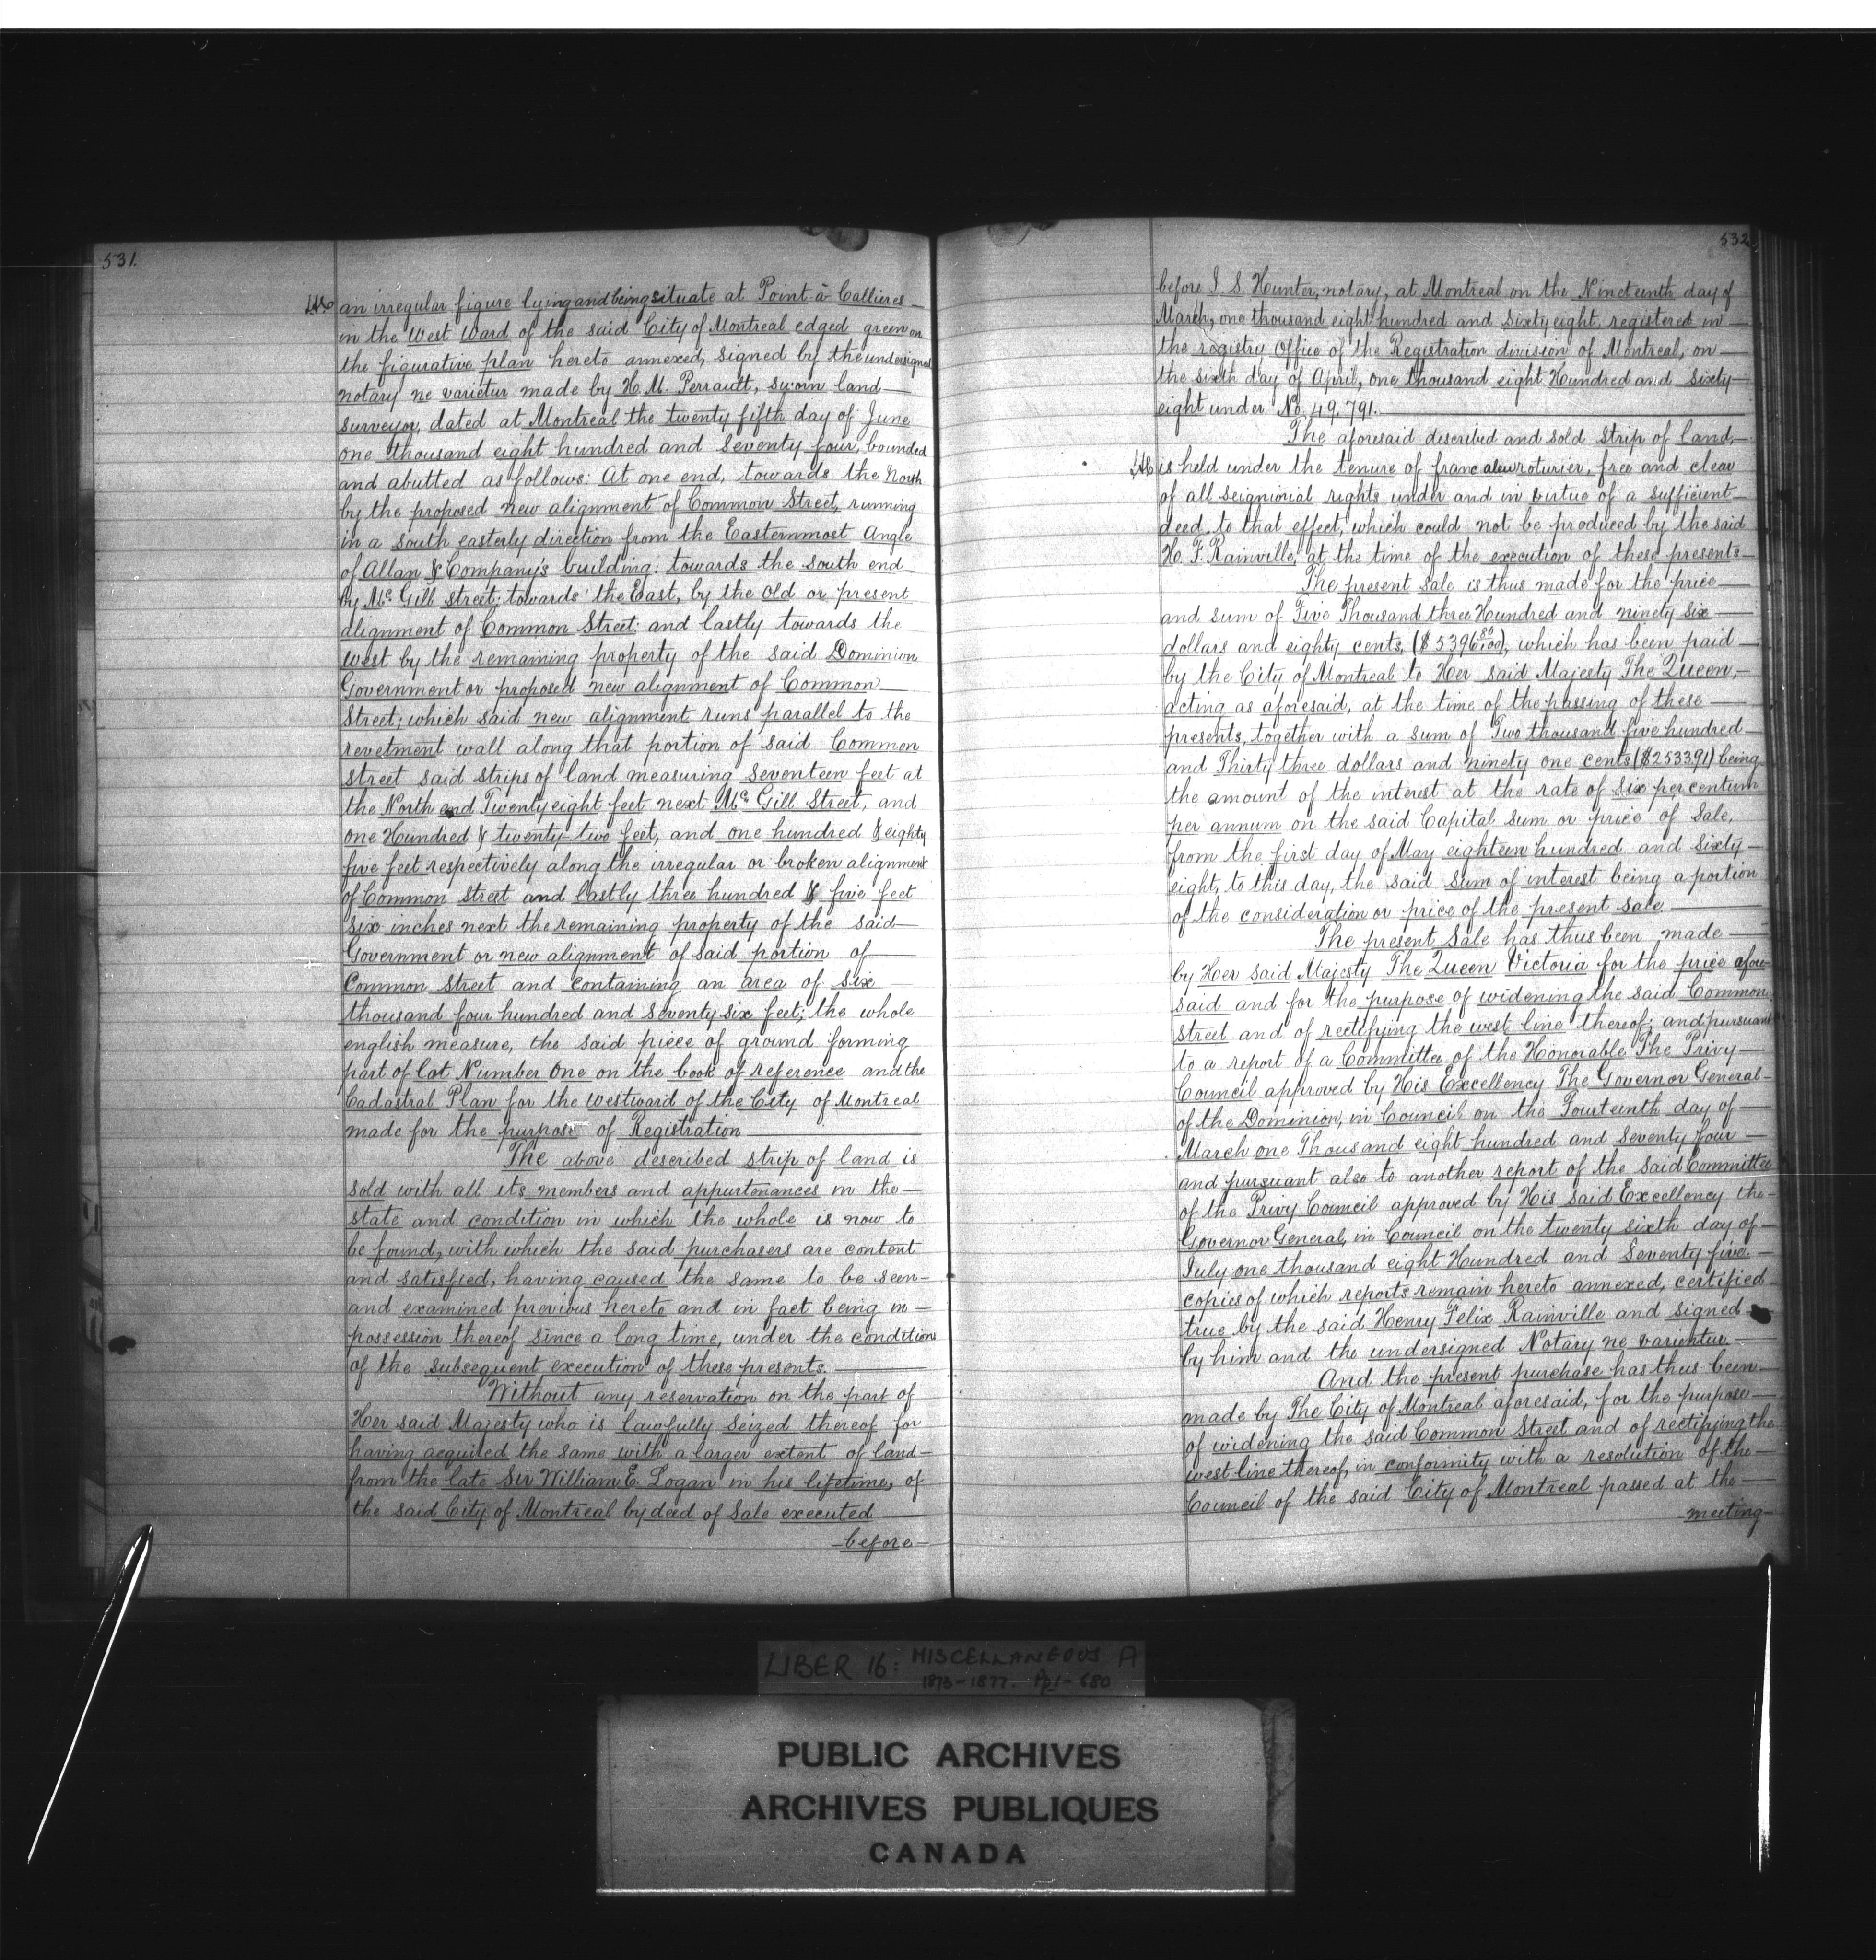 531.
an irregular figure lying and being situate at Point à Callieres
in the West Ward of the said City of Montreal edged green on
the figurative plan hereto annexed, signed by the undersigned
notary ne varietur made by H. M. Perrault, sworn land
surveyor, dated at Montreal the twenty fifth day of June
one thousand eight hundred and Seventy four, bounded
and abutted as follows: At one end, towards the North
by the proposed new alignment of Common Street, running
in a south easterly direction from the Easternmost Angle
of Allan & Company's building: towards the South end
by Mc Gill Street: towards the East, by the old or present
alignment of Common Street: and lastly towards the
West by the remaining property of the said Dominion
Government or proposed new alignment of Common
Street; which said new alignment runs parallel to the
revetment wall along that portion of said Common
street said strips of land measuring seventeen feet at
the North end Twenty eight feet next Mc Gill Street, and
one Hundred & twenty-two feet, and one hundred & eighty
five feet respectively along the irregular or broken alignment
of Common Street and lastly three hundred & five feet
six inches next the remaining property of the said
Government or new alignment of said portion of
Common Street and containing an area of six
thousand four hundred and Seventy six feet; the whole
english measure, the said piece of ground forming
part of lot Number One on the book of reference and the
Cadastral Plan for the Westward of the City of Montreal
made for the purpose of Registration
The above described strip of land is
sold with all its members and appurtenances in the
state and condition in which the whole is now to
be found, with which the said purchasers are content
and satisfied, having caused the same to be seen
and examined previous hereto and in fact being in
possession thereof since a long time, under the condition
of the subsequent execution of these presents
Without any reservation on the part of
Her said Majesty who is lawfully seized thereof for
having acquired the same with a larger extent of land
from the late Sir William E. Logan in his lifetime, of
the said City of Montreal by deed of Sale executed
-before-
532
before I. S. Hunter, notary, at Montreal on the Nineteenth day of
March, one thousand eight hundred and Sixty eight, registered in
the registry Office of the Registration division of Montreal, on
the sixth day of April, one thousand eight Hundred and Sixty
eight under No. 49,791.
The aforesaid described and sold strip of land,
is held under the tenure of franc aleu roturier, free and clear
of all seigniorial rights under and in virtue of a sufficient
deed to that effect, which could not be produced by the said
H. F. Rainville, at the time of the execution of these presents
The present Sale is thus made for the price
and sum of Five Thousand three Hundred and ninety six
dollars and eighty cents, ($5396 80/100), which has been paid
by the City of Montreal to Her said Majesty The Queen,
acting as aforesaid, at the time of the passing of these
presents, together with a sum of Two thousand five hundred
and Thirty three dollars and ninety one cents ($2533.91) being
the amount of the interest at the rate of six per centum
per annum on the said Capital sum or price of Sale,
from the first day of May eighteen hundred and sixty
eight, to this day, the said sum of interest being a portion
of the consideration or price of the present sale
The present Sale has thus been made
by Her said Majesty The Queen Victoria for the price afore
said and for the purpose of widening the said Common
street and of rectifying the west line thereof; and pursuant
to a report of a Committee of the Honorable The Privy
Council approved by His Excellency The Governor General
of the Dominion, in Council on the Fourteenth day of
March one Thousand eight hundred and Seventy four
and pursuant also to another report of the said Committee
of the Privy Council approved by His said Excellency the
Governor General, in Council on the twenty sixth day of
July one thousand eight Hundred and Seventy five
copies of which reports remain hereto annexed, certified
true by the said Henry Felix Rainville and signed
by him and the undersigned Notary ne varietur
And the present purchase has thus been
made by The City of Montreal aforesaid, for the purpose
of widening the said Common Street and of rectifying the
west line thereof, in conformity with a resolution of the
Council of the said City of Montreal passed at the
-meeting-
LIBER 16: MISCELLANEOUS A
1873-1877. Pp 1-680
PUBLIC ARCHIVES
ARCHIVES PUBLIQUES
CANADA